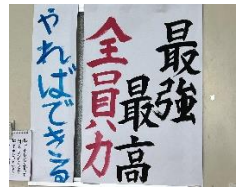 最強
最高
全員力
やればできる